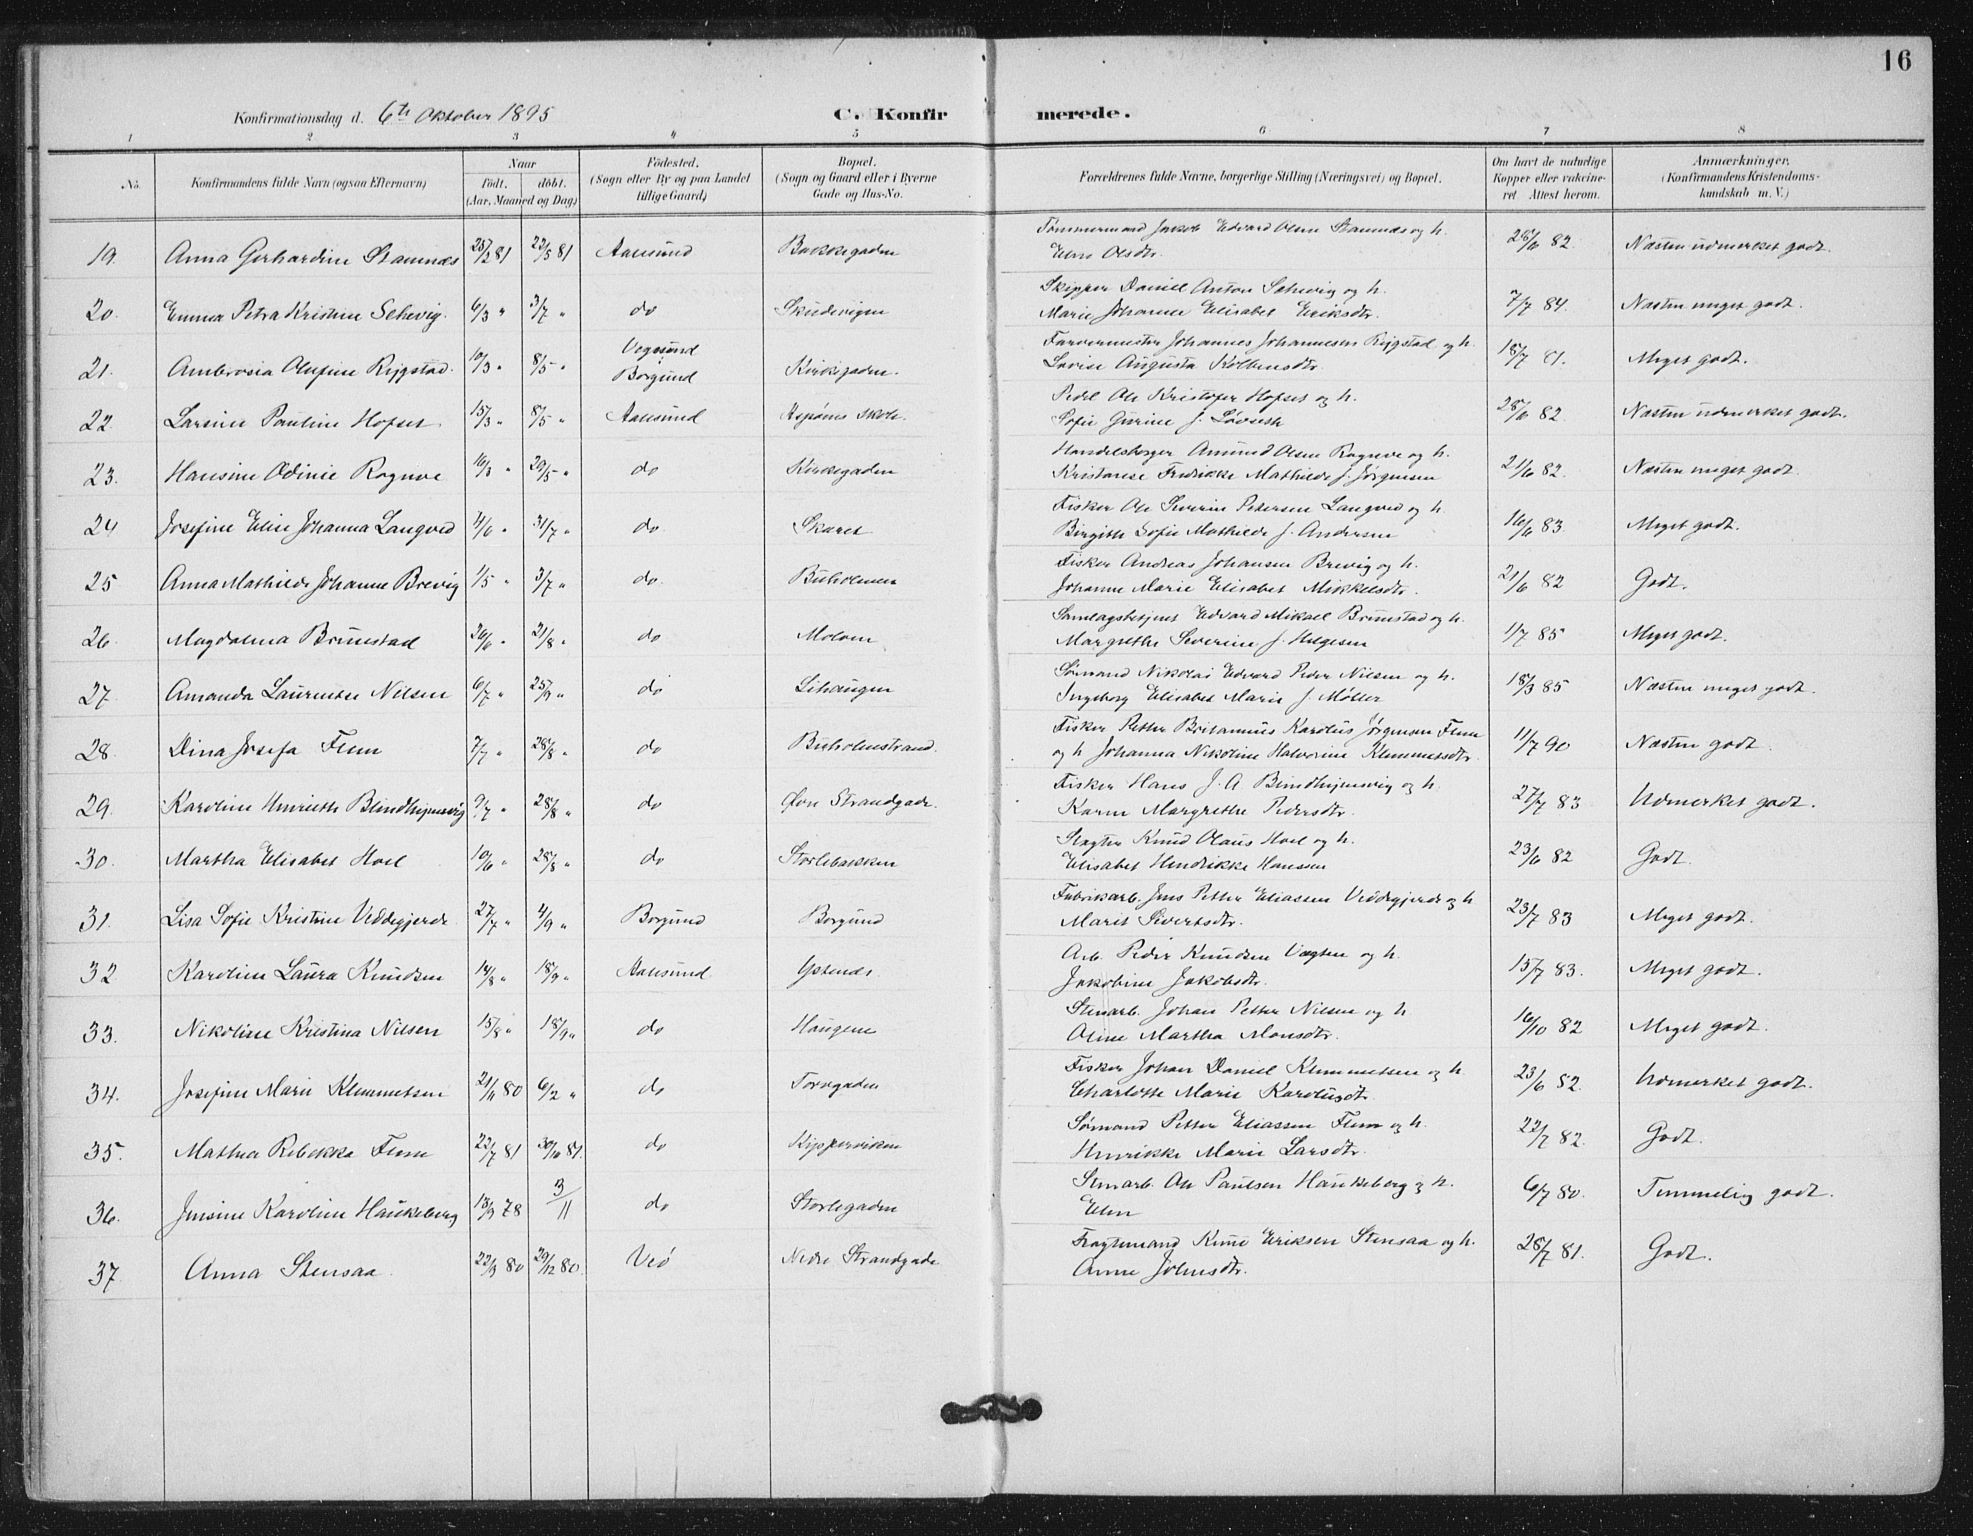 16
Konfirmationsdag d. 6te Oktober 1895 C. Konfirmerede.
1 2 3 4 5 6 7 8
No. Konfirmandens fulde Navn (ogsaa Efternavn) Naar Født. døbt. (Aar, Maaned og Dag) Fødested. (Sogn eller By og paa Landet tillige Gaard) Bopæl. (Sogn og Gaard eller i Byerne Gade og Hus-No. Forældrenes fulde Navne, borgerlige Stilling (Næringsvei) og Bopæl. Om havt de naturlige Kopper eller vakcineret Attest herom. Anmærkninger. (Konfirmandens Kristendomskundskab m. V.)
19. Anna Gerhardine Stamnæs 22/5 81 Aalesund Bakkegaden Tømmermand Jakob Edvard Olsen Stamnæs og h.
Elen Olsdtr. 28/6 82. Næsten udmerket godt.
20. Emma Petra Kristine Sehevig. 6/3 " 3/7 " do Skudevigen Skipper Daniel Anton Sehevig og h.
Marie Johanne Elisabet Eriksdtr. 7/7 84. Næsten meget godt.
21. Ambrosia Olufine Rijgstad. 10/3 " 8/5 " Vegsund Borgund Kirkegaden. Farvermester Johannes Johannesen Rijgstad og h.
Lovise Augusta Kolbensdtr. 18/7 81. Meget godt.
22. Larsine Pauline Hofset 15/3 " 8/5 " Aalesund Aspøens skole. Pedel Ole Kristofer Hofset og h.
Sofie Gurine f. Løvseth 28/6 82. Næsten udmerket godt.
23. Hansine Odinie Ragnve 16/3 " 29/5 " do Kirkegaden Handelsborger Amund Olsen Ragnve og h.
Kristanse Fredrikke Mathilde f. Jørgensen 21/6 82. Næsten meget godt.
24 Josefine Elise Johanna Langved 4/6 " 31/7 " do Skaret Fisker Ole Severin Petersen Langved og h.
Birgithe Sofie Mathilde f. Andersen 16/6 83. Meget godt.
25 Anna Mathilde Johanne Brevig 1/5 " 3/7 " do. Buholmen Fisker Andreas Johansen Brevig og h.
Johanne Marie Elisabet Mikkelsdtr. 21/6 82 Godt.
26. Magdalena Brunstad 26/6 " 21/8 " do Moloen Samlagsbetjent Edvard Mikael Brunstad og h.
Margrethe Severine f. Helgesen 1/7 85 Meget godt.
27. Amanda Laurentse Nilsen 6/7 " 25/9 " do Lihaugen Sømand Nikolai Edvard Peder Nilsen og h.
Ingeborg Elisabet Marie f. Møller 18/3 85. Næsten meget godt.
28. Dina Josefa Flem 7/7 " 28/8 " do Buholmstrand. Fisker Petter Britannus Karolus Jørgensen Flem
og h Johanna Nikoline Halvorine Klemmetsdtr. 11/7 90 Næsten godt.
29. Karoline Henriette Blindhejmsvig 9/7 " 28/8 " do Øvre Strandgade. Fisker Hans J. A. Blindhejmsvig og h.
Karen Margrethe Pedersdtr. 27/7 83 Udmerket godt.
30. Martha Elisabet Hoel 10/6 " 28/8 " do Storlebakken Slagter Knud Olaus Hoel og h.
Elisabet Hendrikke Hanssen 23/6 82 Godt.
31. Lisa Sofie Kristine Veddegjerde 27/7 " 4/9 " Borgund Borgund Fabrikarb. Jens Petter Eliassen Veddegjerde og h
Marit Sivertsdtr. 23/7 83 Meget godt.
32. Karoline Laura Knudsen 14/8 " 18/9 " Aalesund Ystenes. Arb. Peder Knudsen Vægten og h.
Jakobine Jakobsdtr. 15/7 83. Meget godt.
33. Nikoline Kristina Nilsen 15/8 " 18/9 " do Haugene Stenarb. Johan Petter Nilsen og h
Oline Martha Monsdtr. 16/10 82 Meget godt.
34. Josefine Marie Klemmetsen 21/11 80 6/2 " do Torvgaden Fisker Johan Daniel Klemmetsen og h.
Charlotte Marie Karolusdtr. 23/6 82. Udmerket godt.
35. Mathea Rebekka Flem 22/7 81 30/10 81. do Kippervikens Sømand Petter Eliassen Flem og h.
Henrikke Marie Larsdtr. 22/7 82. Godt.
36. Jensine Karoline Haukeberg 18/9 78 3/11 do Storlegaden Stenarb. Ole Paulsen Haukeberg og h.
Elen 6/7 80. Temmelig godt.
37 Anna Stensaa 22/9 80 29/12 80. Veø Nedre Strandgade Fragtemand Knud Eriksen Stensaa og h.
Anne Johnsdtr. 28/7 81. Godt.